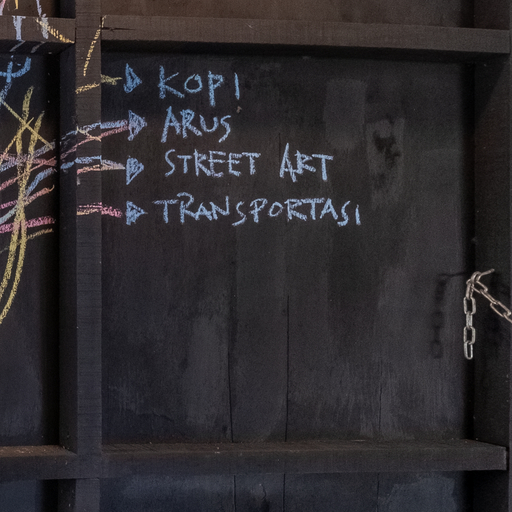 KOPI
ARUS
STREET ART
TRANSPORTASI